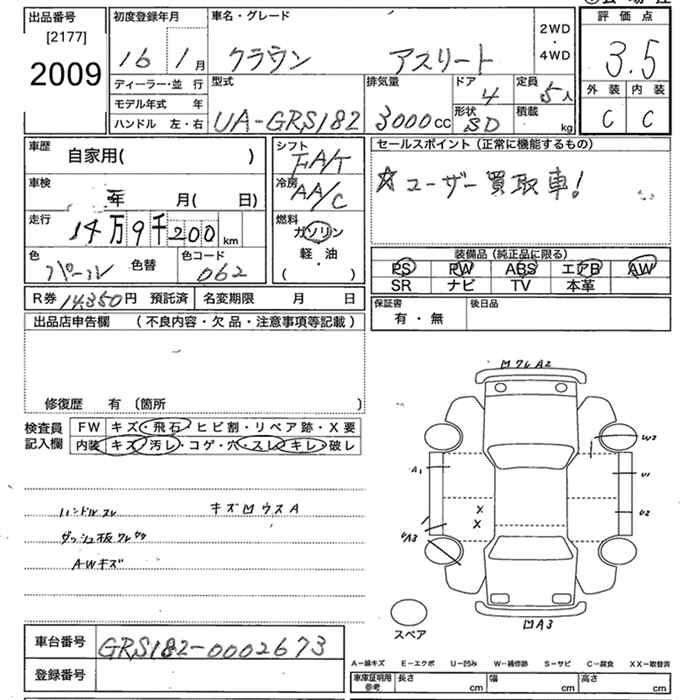 出品番号
[2177]
2009
初度登録年月
16 1月
車名・グレード
クラウン アスリート
2WD
・
4WD
評価点
3.5
外装 内装
C C
ディーラー・並 行
モデル年式 年
ハンドル 左・右
型式
UA-GRS182
排気量
3000cc
ドア
4
形状
SD
定員
5人
積載
kg
車歴
自家用( )
車検
年 月( 日)
走行
14万9千200km
色
パール 色替
色コード
062
R券 14,350円 預託済
名変期限 月 日
シフト
FA/T
冷房
AA/C
燃料
ガソリン
軽・油
( )
セールスポイント(正常に機能するもの)
☆ユーザー買取車!
装備品(純正品に限る)
PS PW ABS エアB AW
SR ナビ TV 本革
保証書
有・無
後日品
出品店申告欄 (不良内容・欠品・注意事項等記載)
修復歴 有(箇所 )
検査員
記入欄
FW キズ・飛石・ヒビ割・リペア跡・X要
内装 キズ・汚レ・コゲ・穴・スレ・キレ・破レ
ハンドルスレ キズ凹ウスA
ダッシュ板ワレ
AWキズ
凹ワレA2
A1
W2
U1
U2
UA3
X
X
凹A3
スペア
車台番号
GRS182-0002673
登録番号
A-線キズ E-エクボ U-凹み W-補修跡 S-サビ C-腐食 XX-取替済
車庫証明用
参考
長さ cm
幅 cm
高さ cm